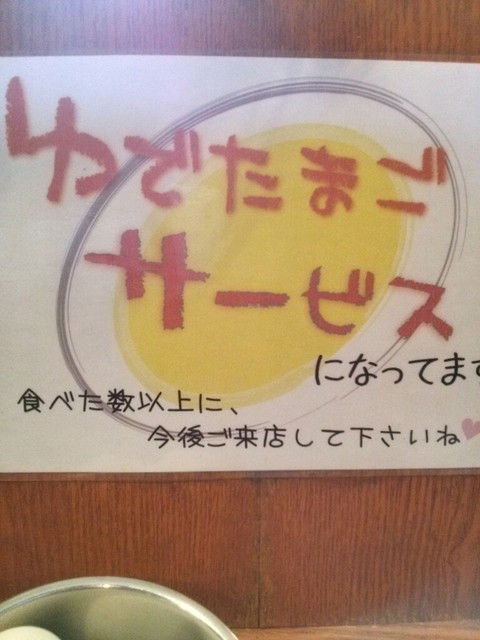 ゆでたまご
サービス
になってます
食べた数以上に、
今後ご来店して下さいね